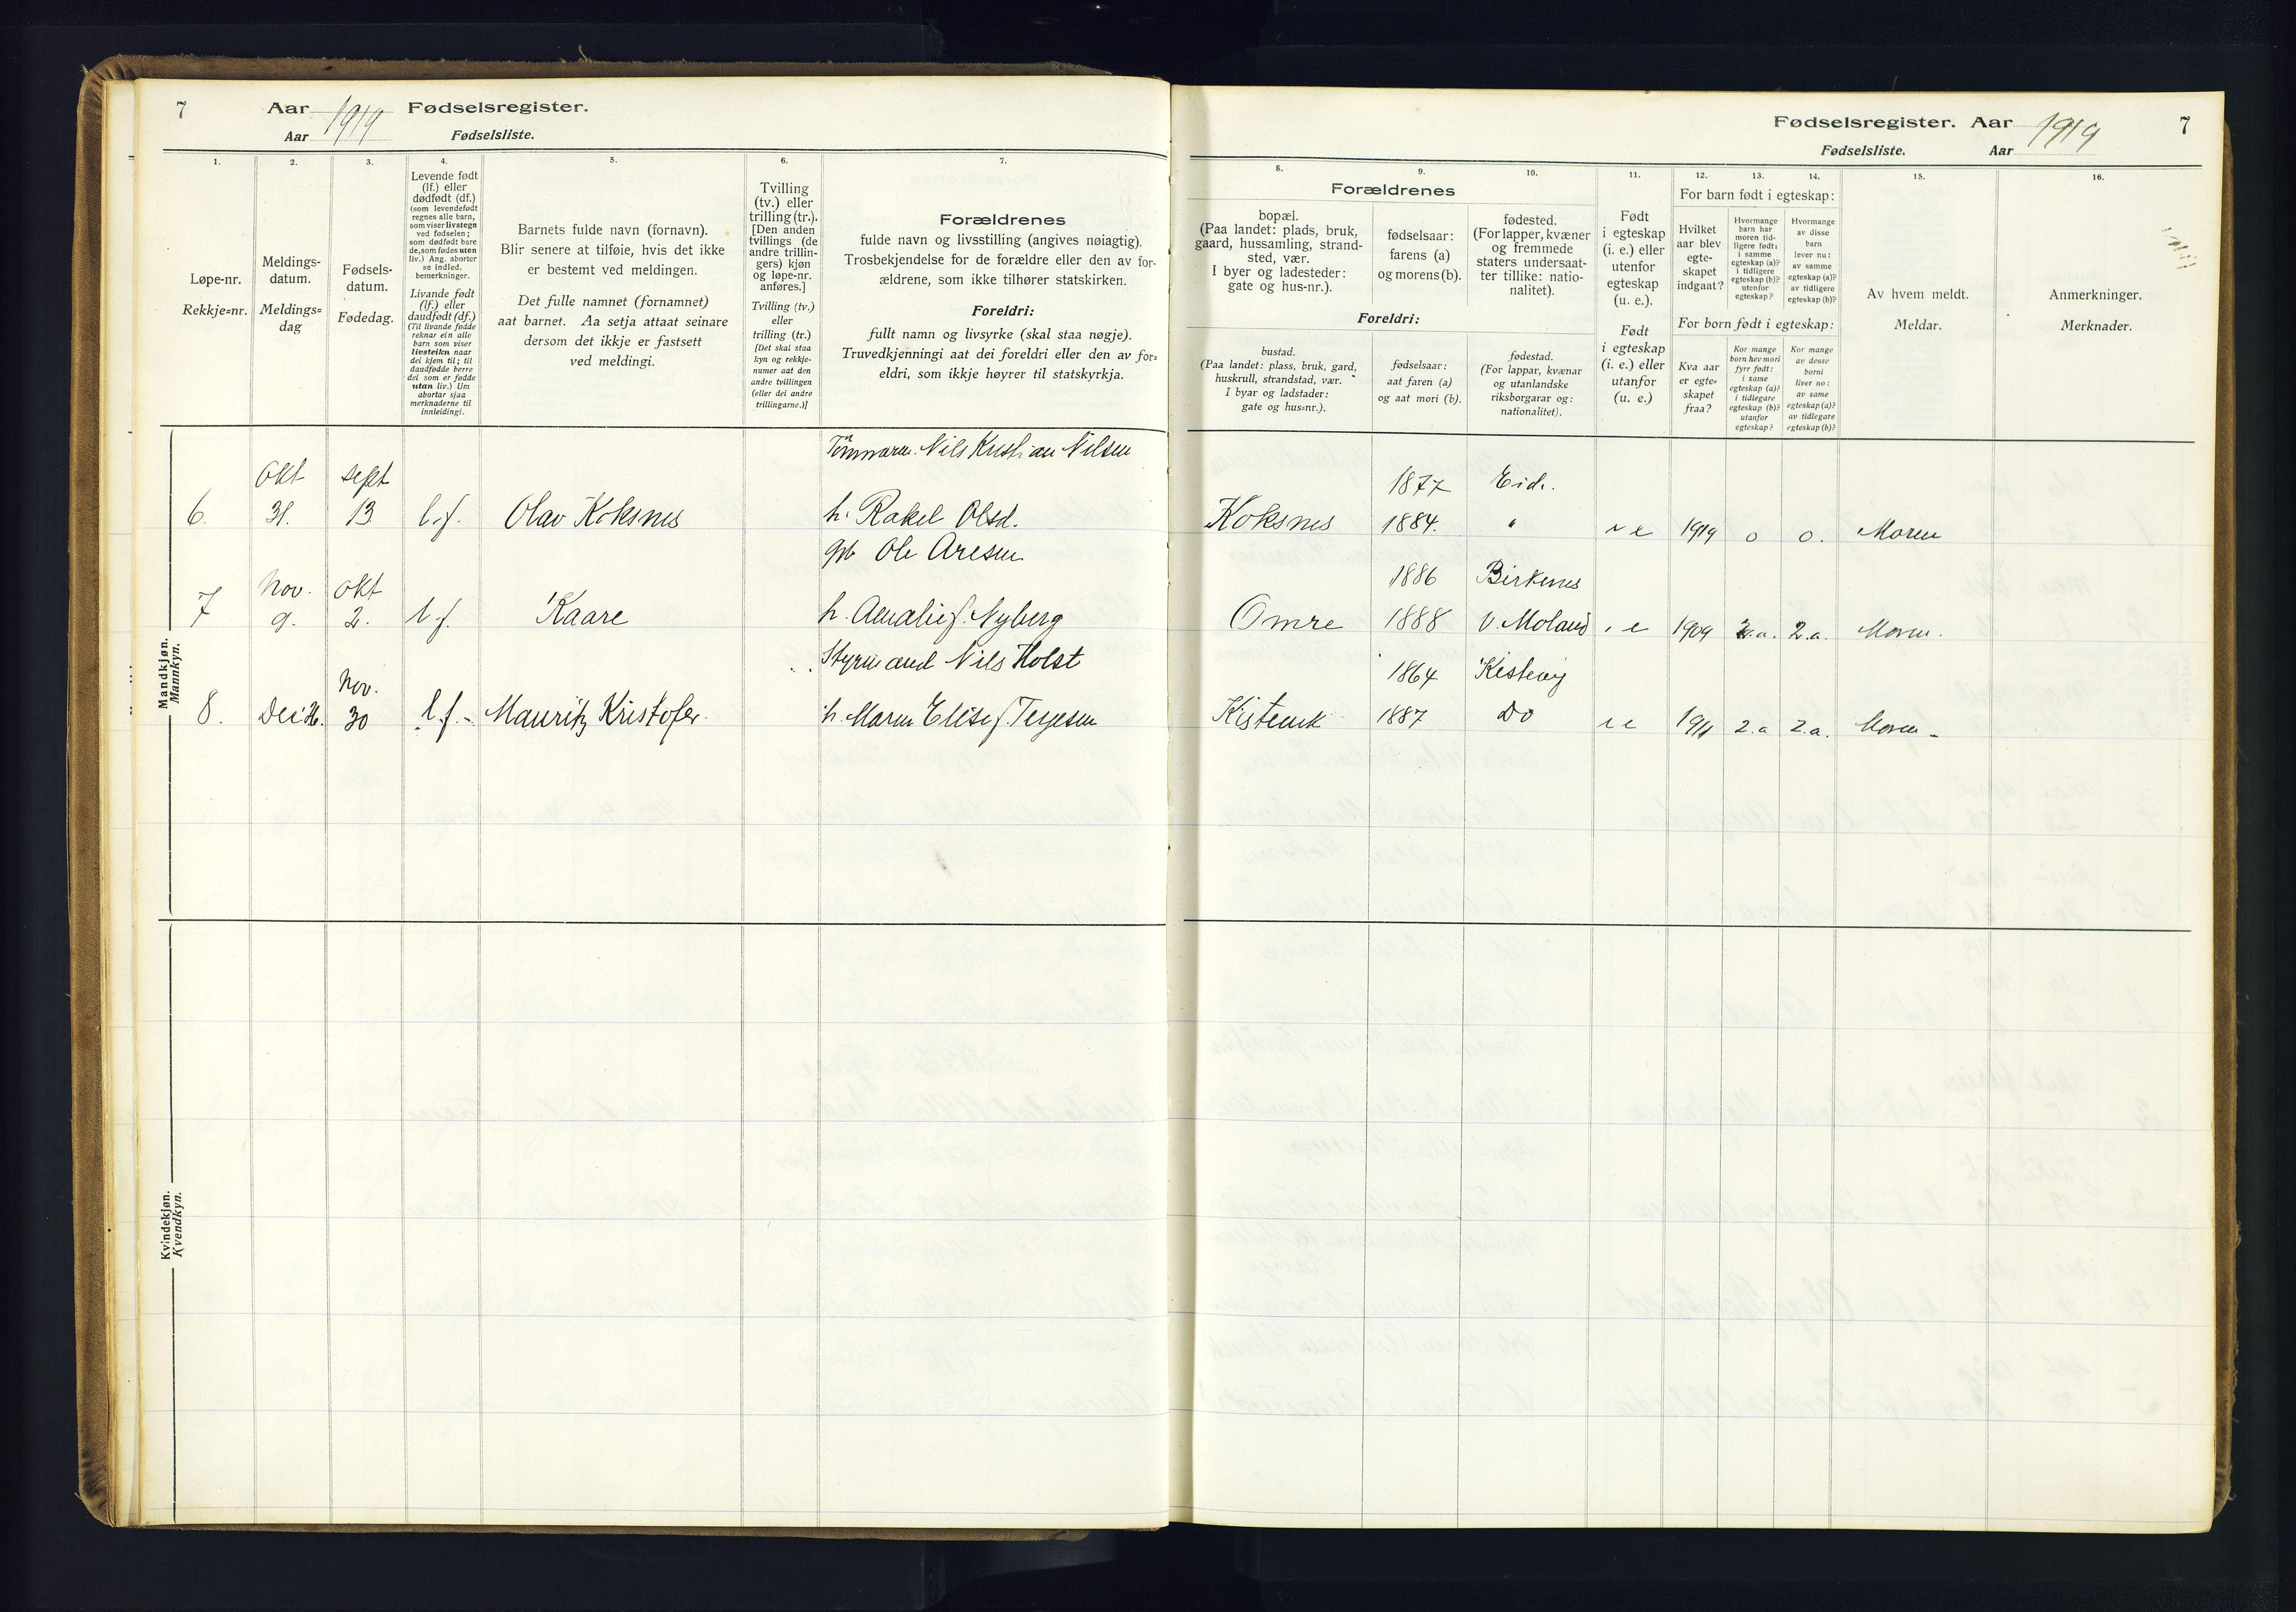 7 Aar 1919 Fødselsregister.
Aar Fødselsliste.
1.
2.
3.
4.
5.
6.
7.
Løpe-nr.
Rekkje=nr.
Meldings-
datum.
Meldings=
dag
Fødsels-
datum.
Fødedag.
Levende født
(lf.) eller
dødfødt (df.)
(som levendefødt
regnes alle barn,
som viser livstegn
ved fødselen;
som dødfødt bare
de, som fødes uten
liv.) Ang. aborter
se indled.
bemerkninger.
Livande född
(lf.) eller
daudfødt (df.)
(Til livande fødde
reknar ein alle
barn som viser
livsteikn naar
dei kjem til; til
daudfødde berre
dei som er fødde
utan liv.) Um
abortar sjaa
merknaderne til
innleidingi.
Barnets fulde navn (fornavn).
Blir senere at tilføie, hvis det ikke
er bestemt ved meldingen.
Det fulle namnet (fornamnet)
aat barnet. Aa setja attaat seinare
dersom det ikkje er fastsett
ved meldingi.
Tvilling
(tv.) eller
trilling (tr.).
[Den anden
tvillings (de
andre trillin-
gers) kjøn
og løpe-nr.
anføres.]
Tvilling (tv.)
eller
trilling (tr.)
[Det skal staa
kyn og rekkje-
numer aat den
andre tvillingen
(eller dei andre
trillingarne.)]
Forældrenes
fulde navn og livsstilling (angives nøiagtig).
Trosbekjendelse for de forældre eller den av for-
ældrene, som ikke tilhører statskirken.
Foreldri:
fullt namn og livsyrke (skal staa nøgje).
Truvedkjenningi aat dei foreldri eller den av for=
eldri, som ikkje høyrer til statskyrkja.
Mandkjøn.
Mannkyn.
Nils Kristian Nilsen
Okt sept
6. 31. 13 l.f. Olav Koksnes h. Rakel Olsd.
gb Ole Aresen
Nov. Okt
7 9. 2. l.f. Kaare h. Amalie f. Nyberg
Styrmand Nils Holst
Nov.
8. 30 l.f. Mauritz Kristofer. h. Maren Elise f Terjesen
Kvindekjøn.
Kvendkyn.
Fødselsregister. Aar 1919 7
Fødselsliste. Aar
8.
9.
10.
11.
12.
13.
14.
15.
16.
Forældrenes
bopæl.
(Paa landet: plads, bruk,
gaard, hussamling, strand-
sted, vær.
I byer og ladesteder:
gate og hus-nr.).
fødselsaar:
farens (a)
og morens (b).
fødested.
(For lapper, kvæner
og fremmede
staters undersaat-
ter tillike: natio-
nalitet).
Foreldri:
bustad.
(Paa landet: plass, bruk, gard,
huskrull, strandstad, vær.
I byar og ladstader:
gate og hus=nr.).
fødselsaar:
aat faren (a)
og aat mori (b).
fødestad.
(For lappar, kvænar
og utanlandske
riksborgarar og:
nationalitet).
Født
i egteskap
(i. e.) eller
utenfor
egteskap
(u. e.).
Født
i egteskap
(i. e.) eller
utanfor
(u. e.)
For barn født i egteskap:
Hvilket
aar blev
egte-
skapet
indgaat?
Hvormange
barn har
moren tid-
ligere født:
i samme
egteskap (a)?
i tidligere
egteskap (b)?
utenfor
egteskap?
Hvormange
av disse
barn
lever nu:
av samme
egteskap (a)?
av tidligere
egteskap (b)?
For born født i egteskap:
Kva aar
er egte=
skapet
fraa?
Kor mange
born hev mori
fyrr født:
i same
egteskap (a)?
i tidlegare
egteskap (b)?
utanfor
egteskap?
Kor mange
av desse
borni
liver no:
av same
egteskap (a)?
av tidlegare
egteskap (b)?
Av hvem meldt.
Meldar.
Anmerkninger.
Merknader.
1877 Eid.
Koksnes 1884. " i e 1919 0 0. Moren
1886 Birkenes
Omre 1888 V. Moland i e 1909 2.a. 2.a. Moren.
1864
1887 Do i e 1911 2.a 2.a. Moren